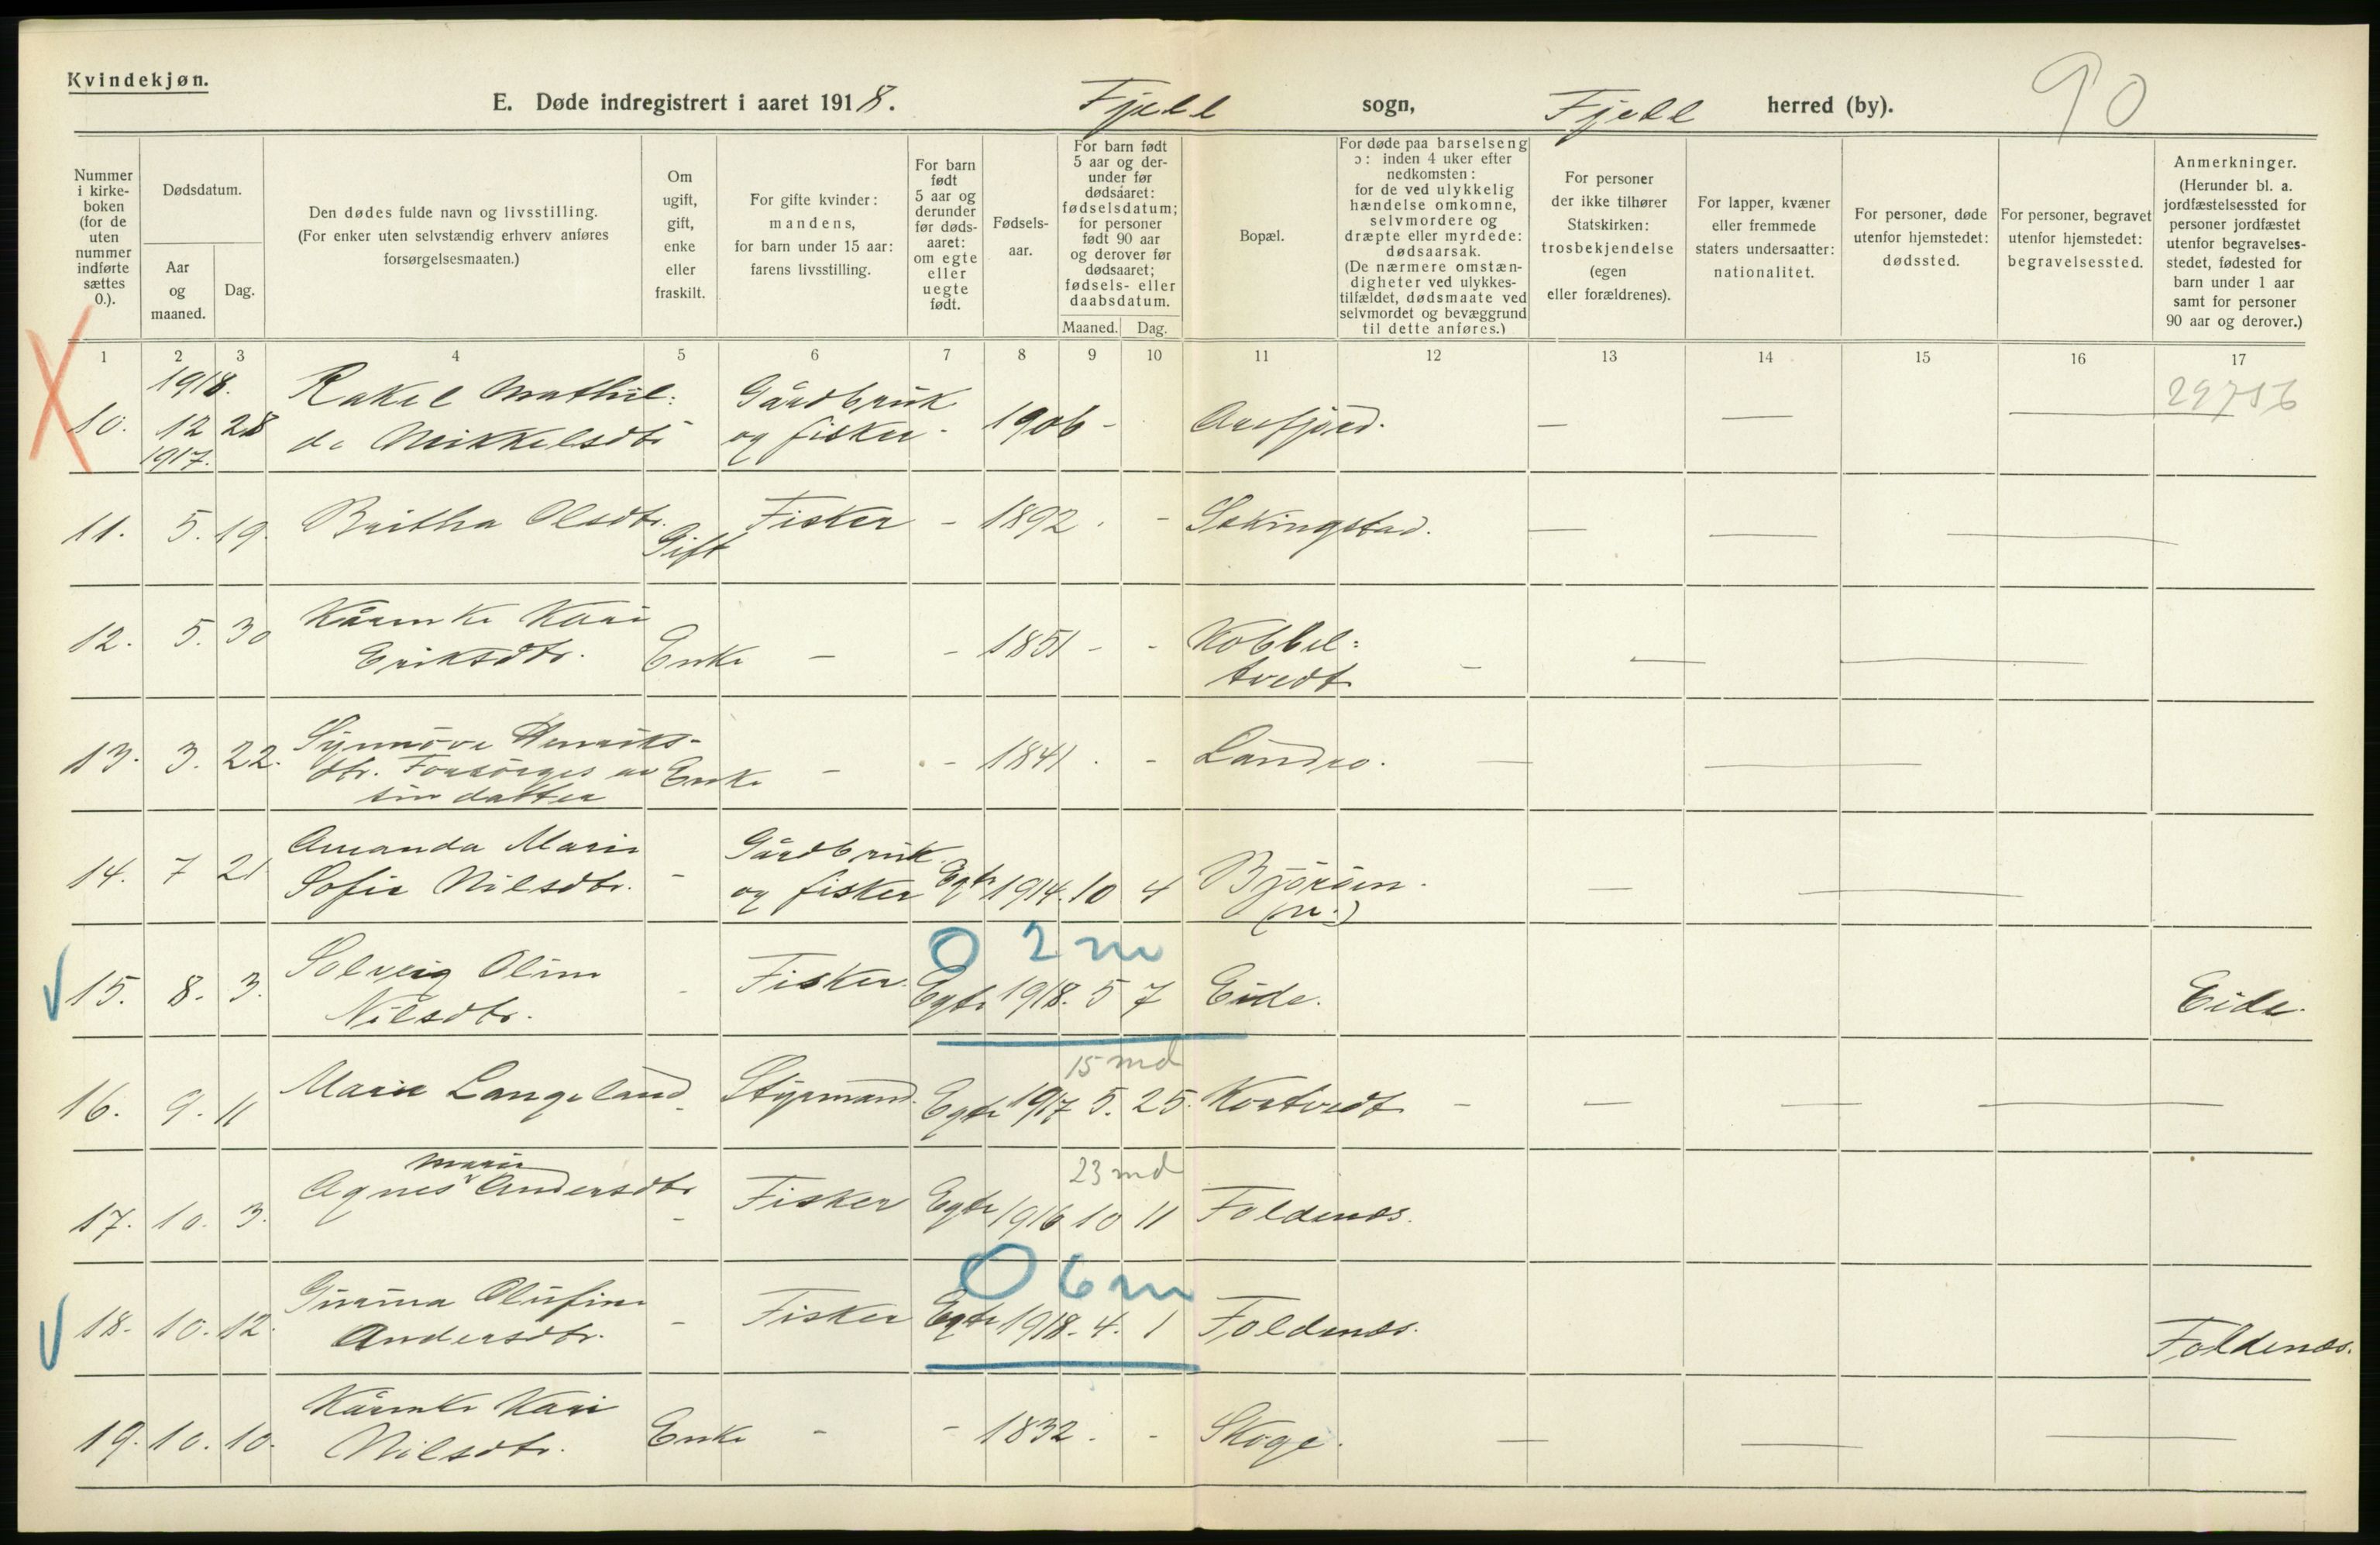 Kvindekjøn.
E. Døde indregistrert i aaret 1918. Fjell sogn, Fjell herred (by).
90
Nummer i kirke-boken (for de uten nummer indførte sættes 0.).
Dødsdatum.
Aar og maaned.
Dag.
Den dødes fulde navn og livsstilling. (For enker uten selvstændig erhverv anføres forsørgelsesmaaten.)
Om ugift, gift, enke eller fraskilt.
For gifte kvinder: mandens, for barn under 15 aar: farens livsstilling.
For barn født 5 aar og derunder før døds-aaret: om egte eller uegte født.
Fødsels-aar.
For barn født 5 aar og der-under før dødsåaret: fødselsdatum; for personer født 90 aar og derover før dødsaaret; fødsels- eller daabsdatum.
Maaned. Dag.
Bopæl.
For døde paa barselseng ɔ: inden 4 uker efter nedkomsten: for de ved ulykkelig hændelse omkomne, selvmordere og dræpte eller myrdede: dødsaarsak. (De nærmere omstæn-digheter ved ulykkes-tilfældet, dødsmaate ved selvmordet og bevæggrund til dette anføres.)
For personer der ikke tilhører Statskirken: trosbekjendelse (egen eller forældrenes).
For lapper, kvæner eller fremmede staters undersaatter: nationalitet.
For personer, døde utenfor hjemstedet: dødssted.
For personer, begravet utenfor hjemstedet: begravelsessted.
Anmerkninger. (Herunder bl. a. jordfæstelsessted for personer jordfæstet utenfor begravelses-stedet, fødested for barn under 1 aar samt for personer 90 aar og derover.)
1 2 3 4 5 6 7 8 9 10 11 12 13 14 15 16 17
1918. Rakel Mathil: Gårdbruk 29756
10. 12 28 de Mikkelsdtr og fisker - 1906 - Arefjord. — —
1917.
11. 5. 19. Britha Olsdtr. Gift Fisker - 1892 . - Sekingstad. — —
12. 5. 30 Kårmke Kari Eriksdtr. Enke - - 1851 - - Kobbel: tvedt - — —
13. 3. 22. Synnöve Henriks-
dtr. Forsörges av Enke - - 1841 . - Landro. — —
sin datter
14. 7 21 Amanda Marie Sofie Nilsdtr. - Gårdbruk. og fisker Egte 1914. 10 4 Björöen. (n.) — —
0 2 m
15. 8. 3. Solveig Oline Nilsdtr. - Fisker. Egte 1918. 5 7 Eide. Eide.
15 md
16. 9. 11 Marie Langeland - Styrmand. Egte 1917 5. 25. Kortvedt - — — —
marie 23 md
17. 10. 3. Agnes Andersdtr - Fisker Egte 1916 10 11 Foldenæs.
0 6 m
18. 10. 12. Olufine Andersdtr. - Fisker Egte 1918. 4. 1 Foldenæs. Foldenæs.
19. 10. 10. Kårmke Kari Nilsdtr. Enke - - 1832 . - Skoge. — — —